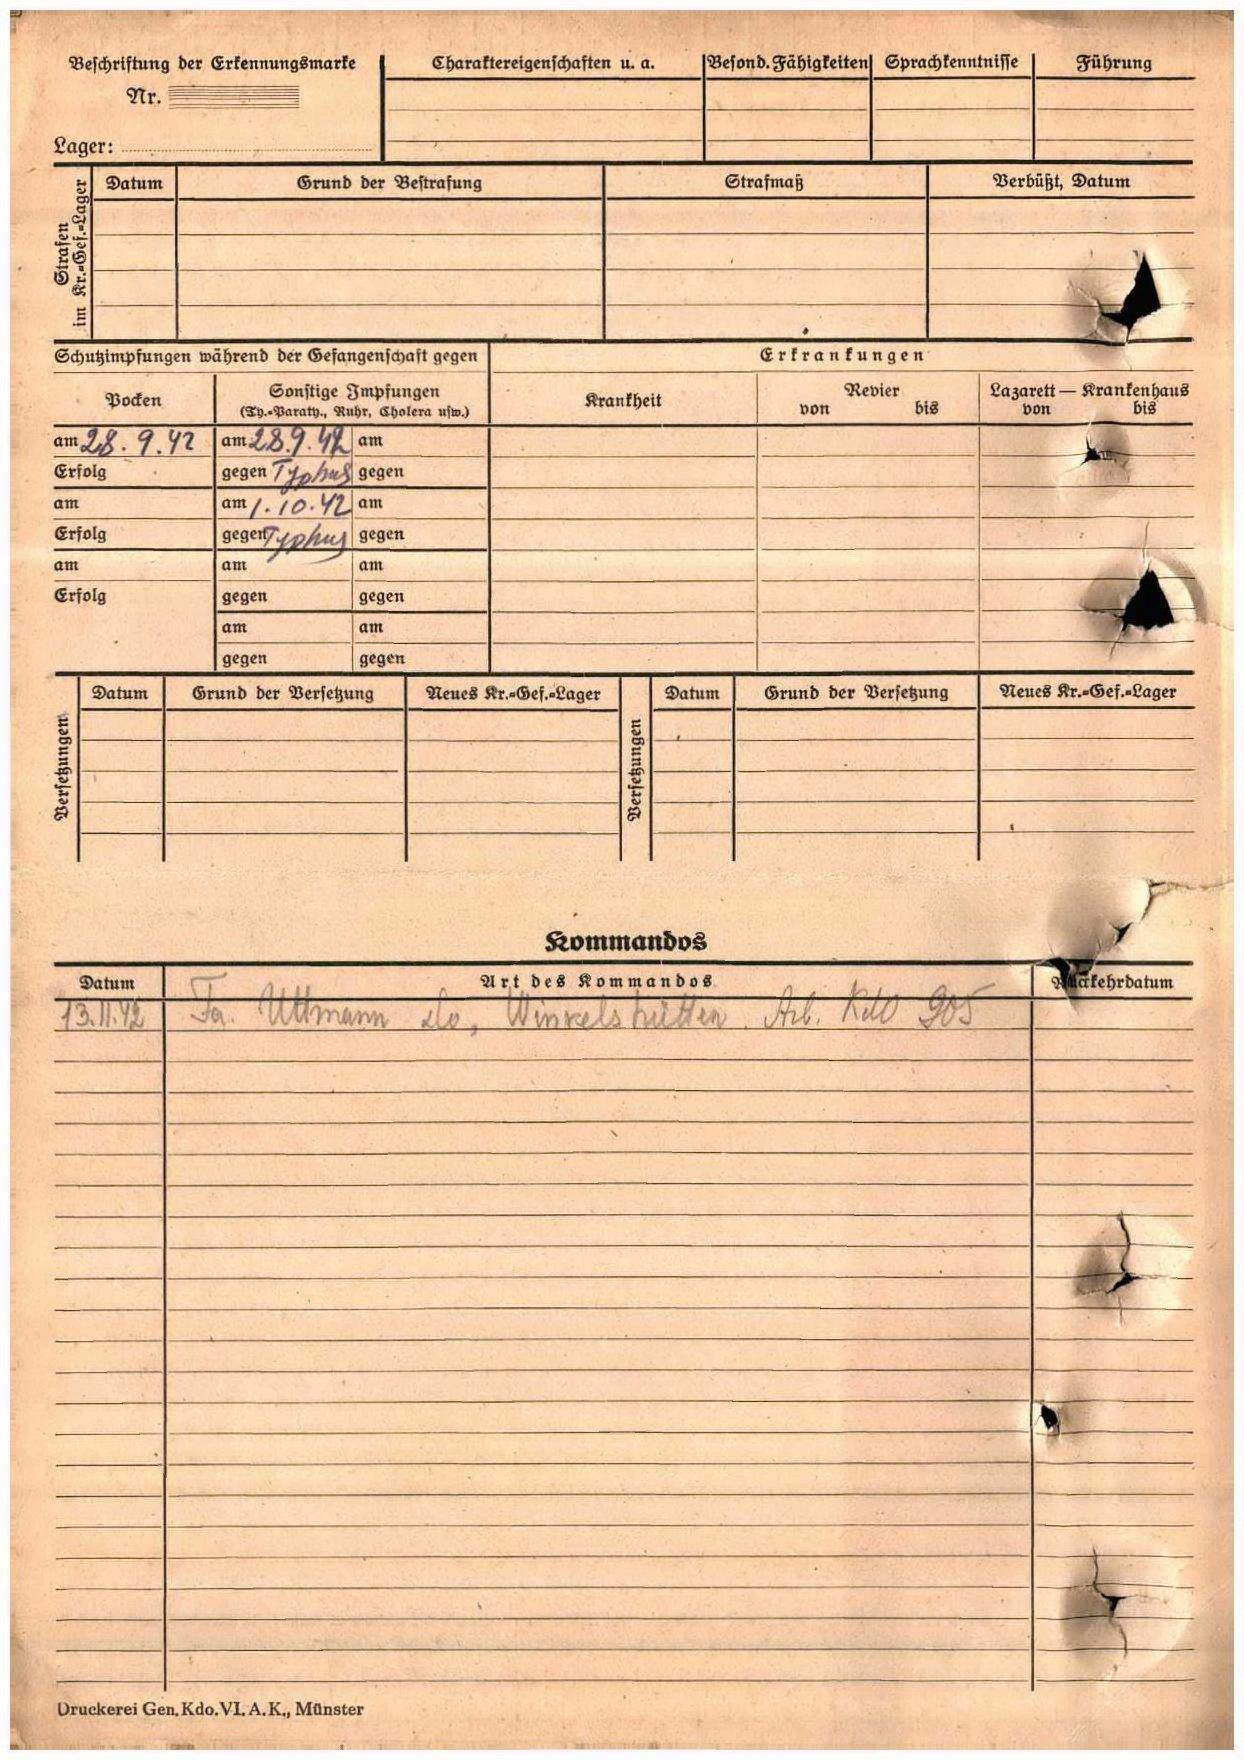 Beschriftung der Erkennungsmarke
Nr.
Lager:
Charaktereigenschaften u. a.
Besond. Fähigkeiten
Sprachkenntnisse
Führung
Strafen
im Kr.=Gef.=Lager
Datum
Grund der Bestrafung
Strafmaß
Verbüßt, Datum
Schutzimpfungen während der Gefangenschaft gegen
Erkrankungen
Pocken
Sonstige Impfungen
(Ty.=Paraty., Ruhr, Cholera usw.)
Krankheit
Revier
von bis
Lazarett — Krankenhaus
von bis
am 28.9.42 am 28.9.42 am
Erfolg gegen Typhus gegen
am am 1.10.42 am
Erfolg gegen Typhus gegen
am am am
Erfolg gegen gegen
am am
gegen gegen
Versetzungen
Datum Grund der Versetzung Neues Kr.=Gef.=Lager
Versetzungen
Datum Grund der Versetzung Neues Kr.=Gef.=Lager
Kommandos
Datum Art des Kommandos Rückkehrdatum
13.11.42 Fa. Uttmann Winkelshütten. Arb. Kdo 905
Druckerei Gen. Kdo. VI. A. K., Münster